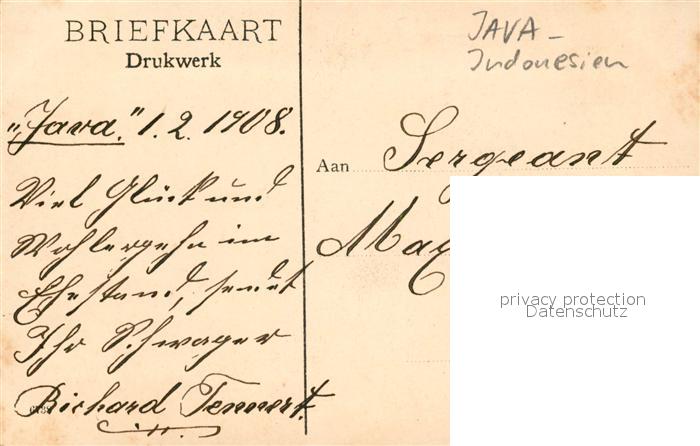 BRIEFKAART
Drukwerk
JAVA –
Indonesien
„Java." 1. 2. 1908.
Viel Glück und
Wohlergehn im
Ehestand, sendet
Ihr Schwager
Richard Tennert.
Aan Sergeant
privacy protection
Datenschutz